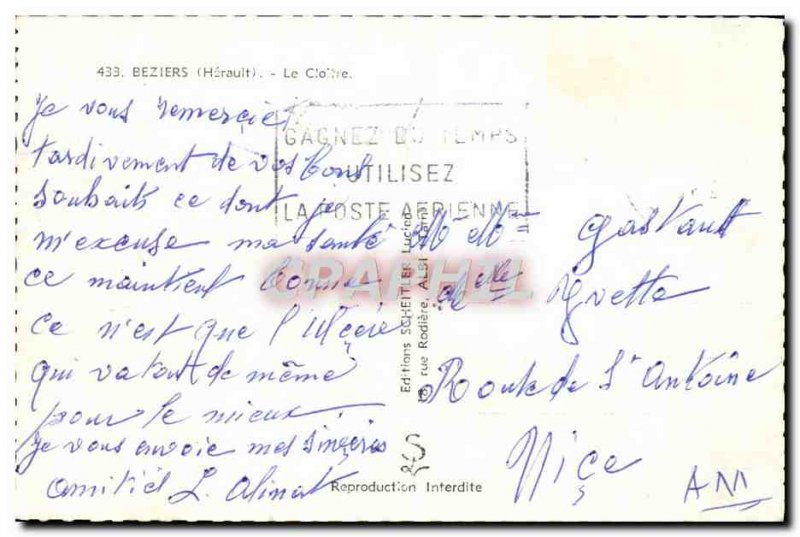 433. BEZIERS (Hérault). - Le Cloître.
Je vous remercie
tardivement de vos bons
souhaits ce dont je
m'excuse ma santé
ce maintient bonne
ce n'est que l'
qui va tout de même
pour le mieux.
je vous envoie mes sincères
amitiés L. Alinat
GAGNEZ DU TEMPS
UTILISEZ
LA POSTE AERIENNE
Editions SCHEITLER Lucien
18 rue Rodière, ALBI (Tarn)
Reproduction Interdite
Mr Mme Gastault
de Yvette
Route de St Antoine
Niçe
AM
CPARAMA